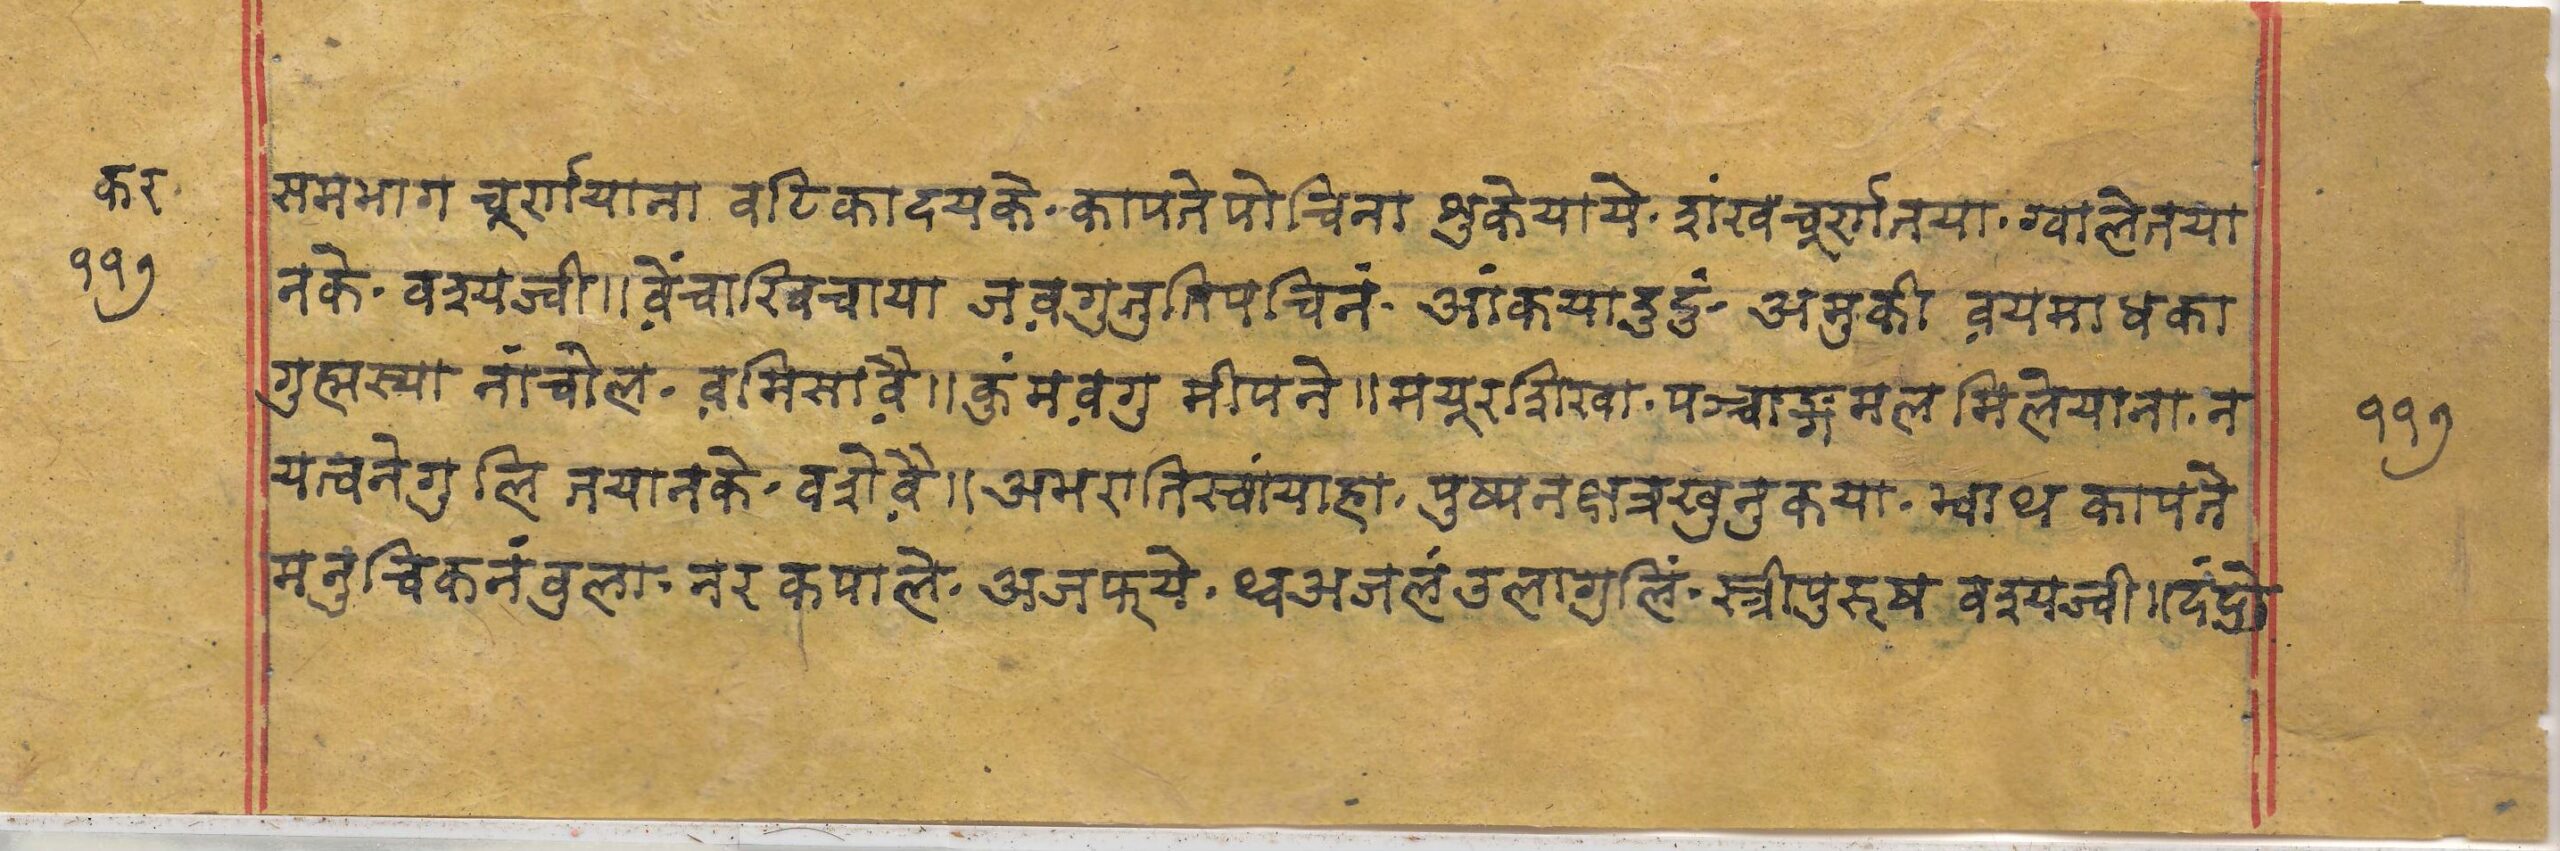 कर
११७
समभाग चूर्णयाना वटिकादयके॰ कापतेपोचिना थुकेयाये॰ शंखचूर्णतया॰ ग्वालेतया
नके॰ वश्यज्वी॥ व़ेंचारिवचाया जव़गुनुतिपचिनं॰ आंकयादुदुं॰ अमुकी व़यमाधका
गुह्मस्या नांचोल॰ व़मिसाव़ै॥ कुंमव़गु मीपने॥ मयूरशिखा॰ पञ्चाङ्गमल मिलेयाना॰ न
यत्वनेगुलि तयानके॰ वशेव़ै॥ अभरातिस्वांयाहा॰ पुष्यनक्षत्रखुनुकया॰ म्वाथ कापतै
मनुचिकनंवुला॰ नरकपाले॰ अजफये॰ थ्वअजलं उलागुलिं॰ स्त्रीपुरूष वश्यज्वी॥
११७